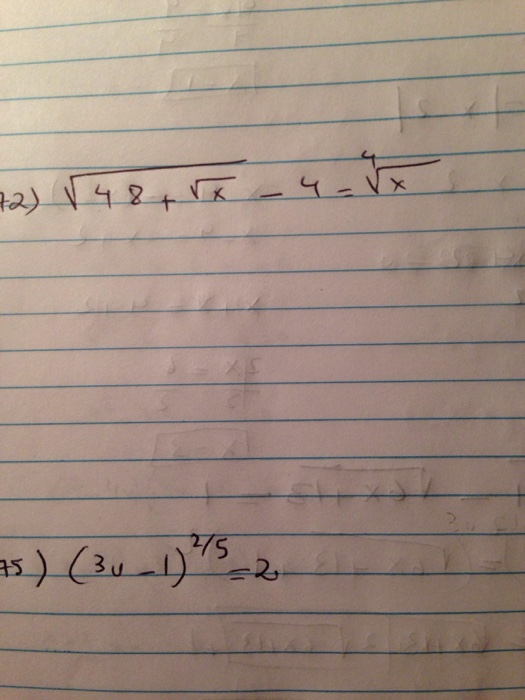 72) √(48 + √x) - 4 = ∜x
75) (3u - 1)^2/5 = 2